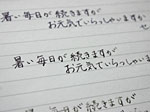 暑い毎日が続きますが
お元気でいらっしゃいますか
暑い毎日が続きますが
お元気でいらっしゃいま
暑い毎日が続きますが
お元気でいらっし